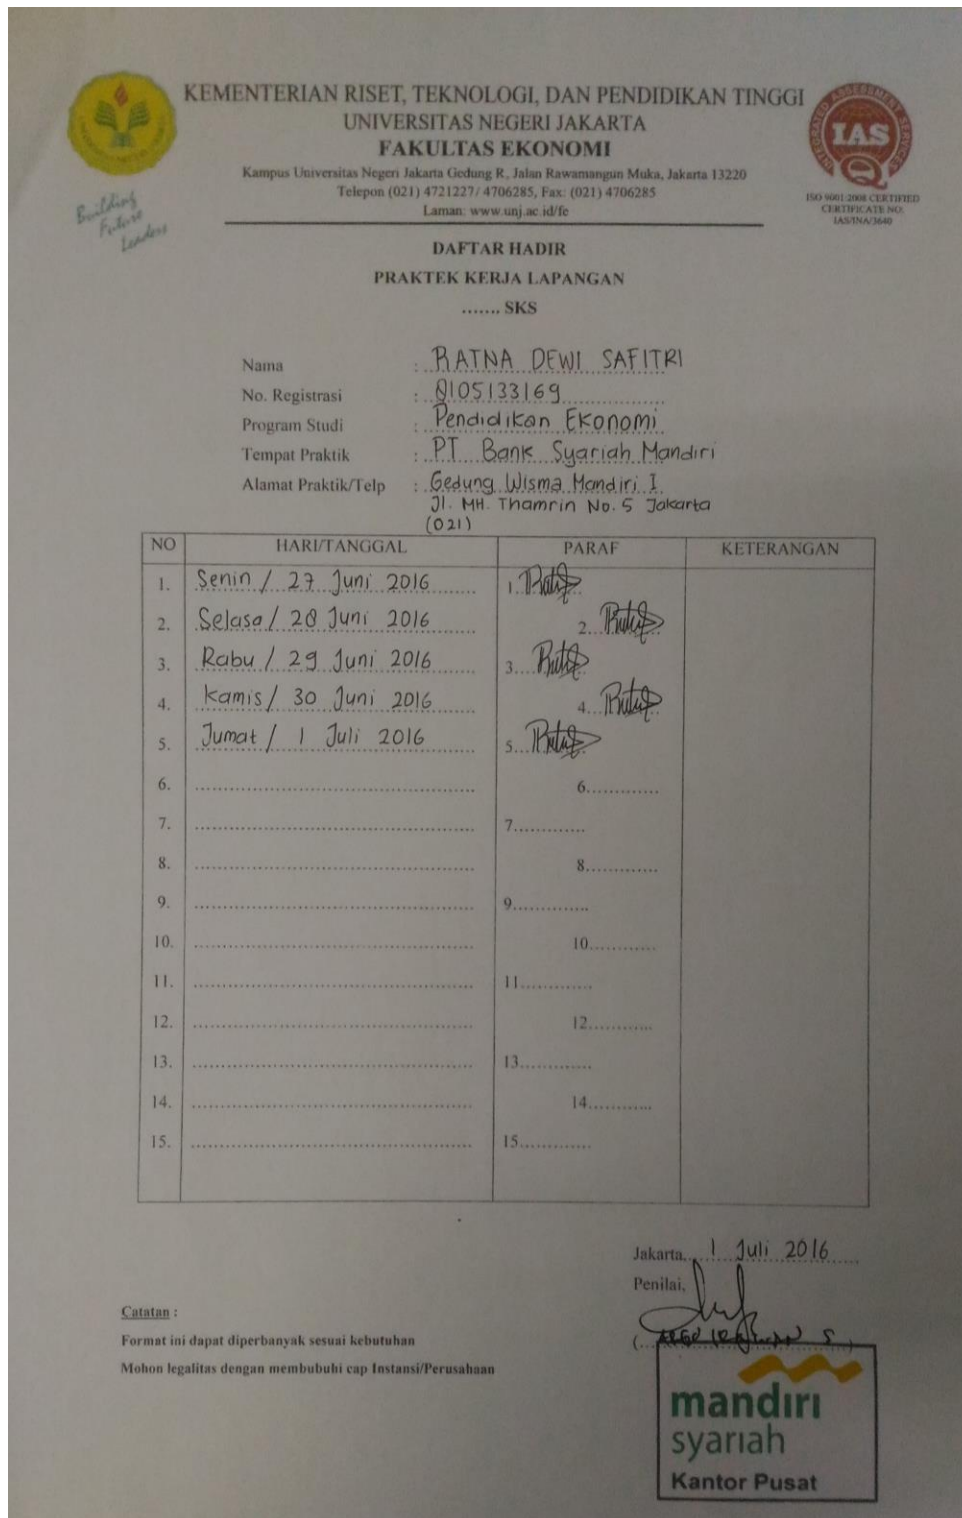 KEMENTERIAN RISET, TEKNOLOGI, DAN PENDIDIKAN TINGGI
UNIVERSITAS NEGERI JAKARTA
FAKULTAS EKONOMI
Kampus Universitas Negeri Jakarta Gedung R, Jalan Rawamangun Muka, Jakarta 13220
Telepon (021) 4721227/ 4706285, Fax: (021) 4706285
Laman: www.unj.ac.id/fe
Building
Future
Leaders
INTEGRATED ASSESSMENT SERVICES
IAS
ISO 9001:2008 CERTIFIED
CERTIFICATE NO:
IAS/INA/3640
DAFTAR HADIR
PRAKTEK KERJA LAPANGAN
....... SKS
Nama : RATNA DEWI SAFITRI
No. Registrasi : 8105133169
Program Studi : Pendidikan Ekonomi
Tempat Praktik : PT Bank Syariah Mandiri
Alamat Praktik/Telp : Gedung Wisma Mandiri I
Jl. MH. Thamrin No. 5 Jakarta
(021)
NO HARI/TANGGAL PARAF KETERANGAN
1. Senin / 27 Juni 2016 1.
2. Selasa / 28 Juni 2016 2.
3. Rabu / 29 Juni 2016 3.
4. Kamis / 30 Juni 2016 4.
5. Jumat / 1 Juli 2016 5.
6. 6.
7. 7.
8. 8.
9. 9.
10. 10.
11. 11.
12. 12.
13. 13.
14. 14.
15. 15.
Jakarta, 1 Juli 2016
Penilai,
Catatan :
Format ini dapat diperbanyak sesuai kebutuhan
Mohon legalitas dengan membubuhi cap Instansi/Perusahaan
mandiri
syariah
Kantor Pusat